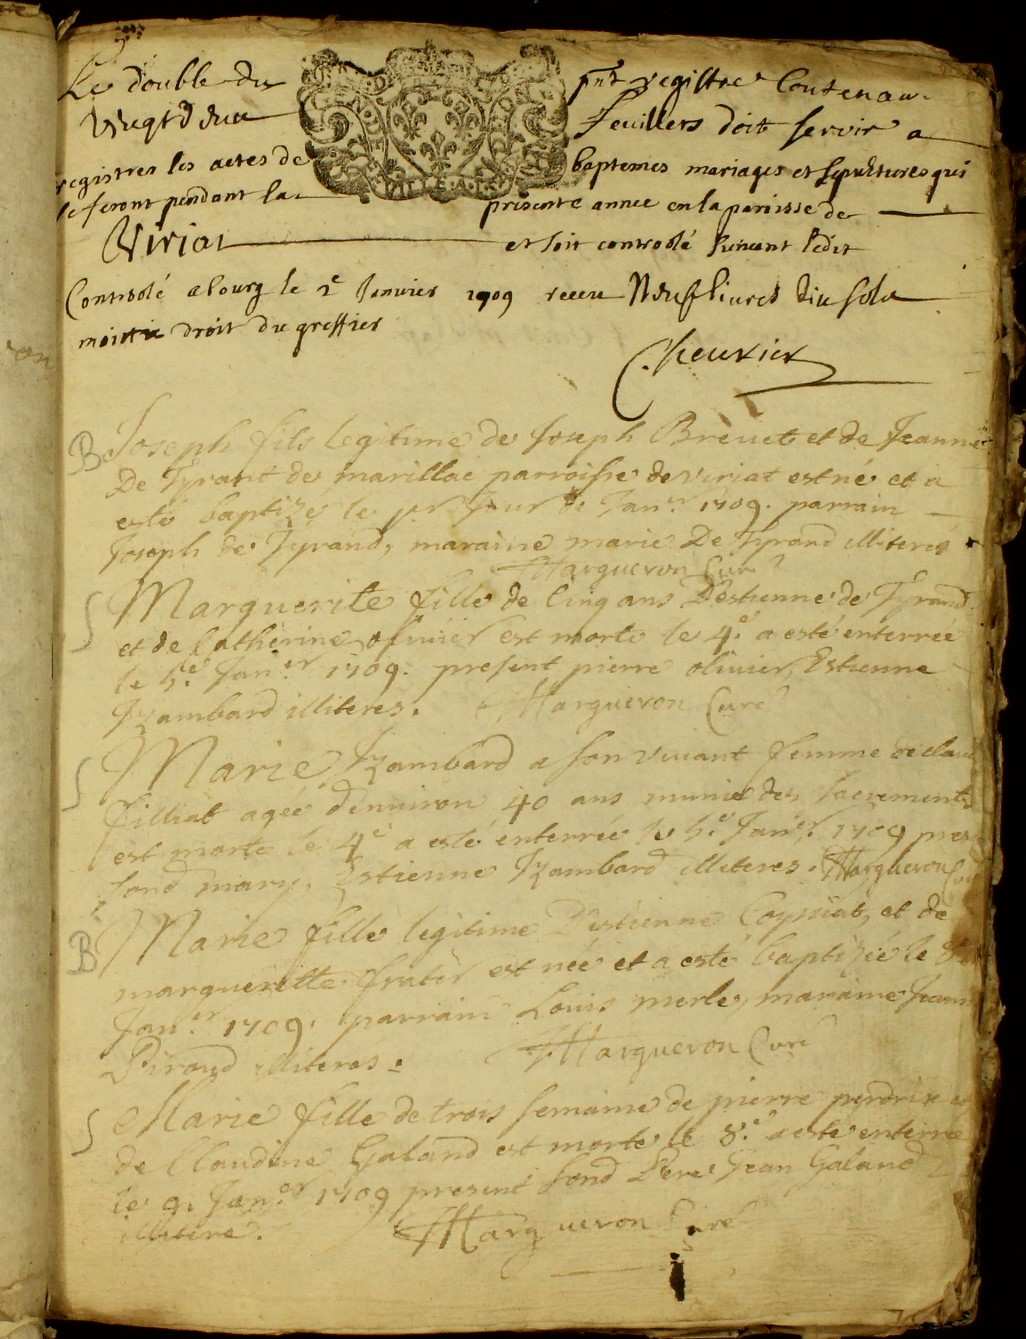 Le double du pnt registre Contenan
Vingt deux feuillets doit servir a
registrer les actes de baptemes mariages et sepultures qui
se feront pendant la presente annee en la paroisse de
Viriat et soit controolé suivant ledit
Controolé a bourg le 2e Janvier 1709 receu Neuf livres dix sols
moitie droit du greffier
Cheurier
B Joseph fils legitime de Joseph Brevet et de Jeanne
De Tyrant de marillac parroisse de viriat est né et a
esté baptizé le pr jour de Janer 1709. parrain
Joseph de Tyrand, maraine marie De Tyrand illiteres
Margueron Curé
S Marguerite fille de Cinq ans D'estienne de Tyrand
et de Catherine olivier est morte le 4e a esté enterrée
le 5e Janer 1709. present pierre olivier, Estienne
Jzambard illiteres. Margueron Curé
S Marie Jzambard a son vivant femme de clau
filliat agée d'environ 40 ans munie des sacrements
est morte le 4e a esté enterrée le 5e Janer 1709 pres
sond mary, Estienne Jzambard illiteres. Margueron Curé
B Marie fille legitime D'estienne Coppiat, et de
margueritte frater est née et a esté baptizée le
Janer 1709. parrain Louis merle, maraine Jeanne
Pirand illiteres. Margueron Curé
S Marie fille de trois semaine de pierre perdrix et
de Claudine Galand est morte le 8e a esté enterrée
le 9. Janer 1709 present sond Pere Jean Galand
illitere. Margueron Curé